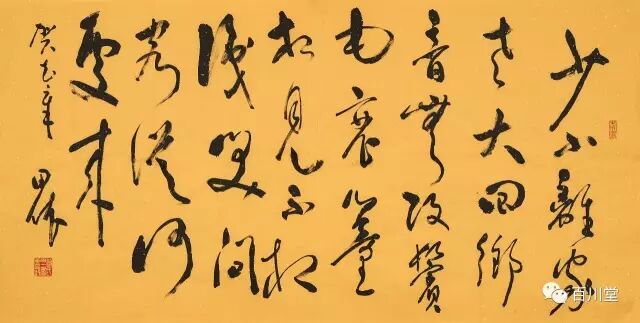 少小離家
老大回鄉
音無改鬢
毛衰兒童
相見不相
識笑問
客從何
處來
癸巳年
田
百川堂